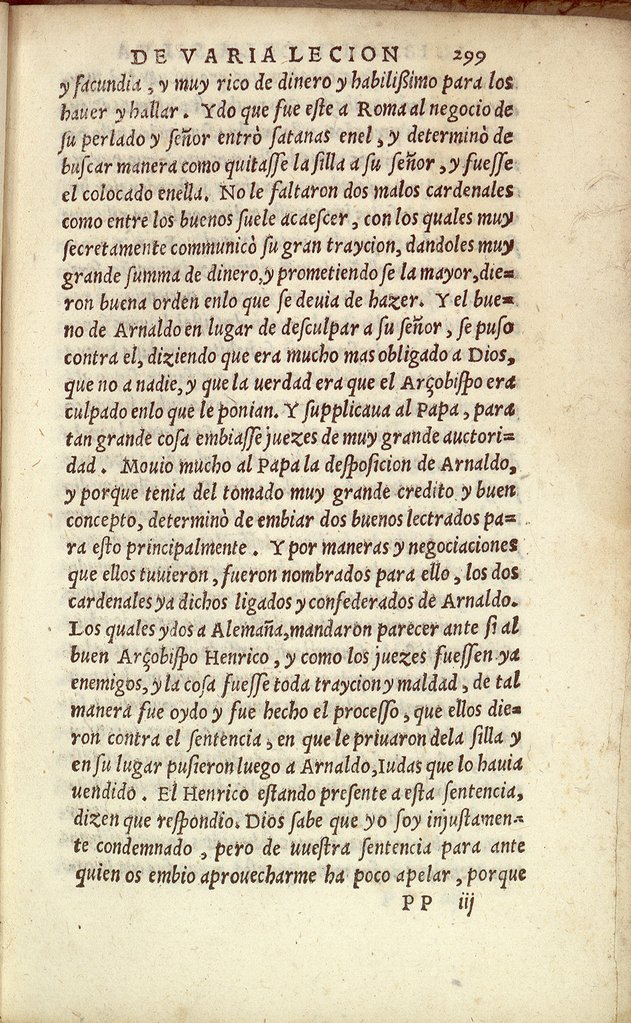 DE VARIA LECION 299
y facundia, y muy rico de dinero y habilißimo para los
hauer y hallar. Ydo que fue eſte a Roma al negocio de
ſu perlado y ſeñor entrò ſatanas enel, y determinò de
buſcar manera como quitaſſe la ſilla a ſu ſeñor, y fueſſe
el colocado enella. No le faltaron dos malos cardenales
como entre los buenos ſuele acaeſcer, con los quales muy
ſecretamente communicò ſu gran traycion, dandoles muy
grande ſumma de dinero, y prometiendo ſe la mayor, die=
ron buena orden enlo que ſe deuia de hazer. Y el bue=
no de Arnaldo en lugar de deſculpar a ſu ſeñor, ſe puſo
contra el, diziendo que era mucho mas obligado a Dios,
que no a nadie, y que la uerdad era que el Arçobiſpo era
culpado enlo que le ponian. Y ſupplicaua al Papa, para
tan grande coſa embiaſſe juezes de muy grande auctori=
dad. Mouio mucho al Papa la deſpoſicion de Arnaldo,
y porque tenia del tomado muy grande credito y buen
concepto, determinò de embiar dos buenos lectrados pa=
ra eſto principalmente. Y por maneras y negociaciones
que ellos tuuieron, fueron nombrados para ello, los dos
cardenales ya dichos ligados y confederados de Arnaldo.
Los quales ydos a Alemaña, mandaron parecer ante ſi al
buen Arçobiſpo Henrico, y como los juezes fueſſen ya
enemigos, y la coſa fueſſe toda traycion y maldad, de tal
manera fue oydo y fue hecho el proceſſo, que ellos die=
ron contra el ſentencia, en que le priuaron dela ſilla y
en ſu lugar puſieron luego a Arnaldo, Iudas que lo hauia
uendido. El Henrico eſtando preſente a eſta ſentencia,
dizen que reſpondio. Dios ſabe que yo ſoy injuſtamen=
te condemnado, pero de uueſtra ſentencia para ante
quien os embio aprouecharme ha poco apelar, porque
PP iij